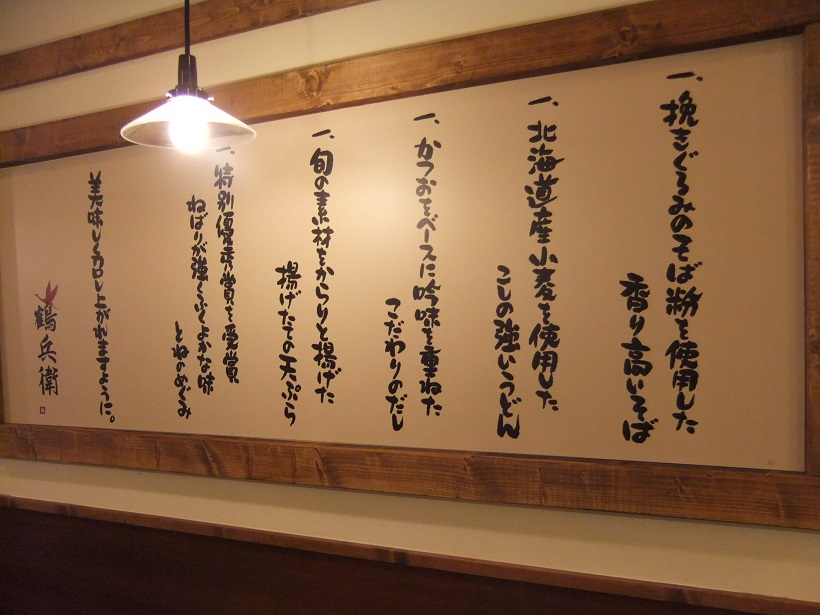 一、挽きぐるみのそば粉を使用した
香り高いそば
一、北海道産小麦を使用した
こしの強いうどん
一、かつおをベースに吟味を重ねた
こだわりのだし
一、旬の素材をからりと揚げた
揚げたての天ぷら
一、特別優秀賞を受賞
ねばりが強くふくよかな味
とねのめぐみ
美味しく召し上がれますように。
鶴兵衛